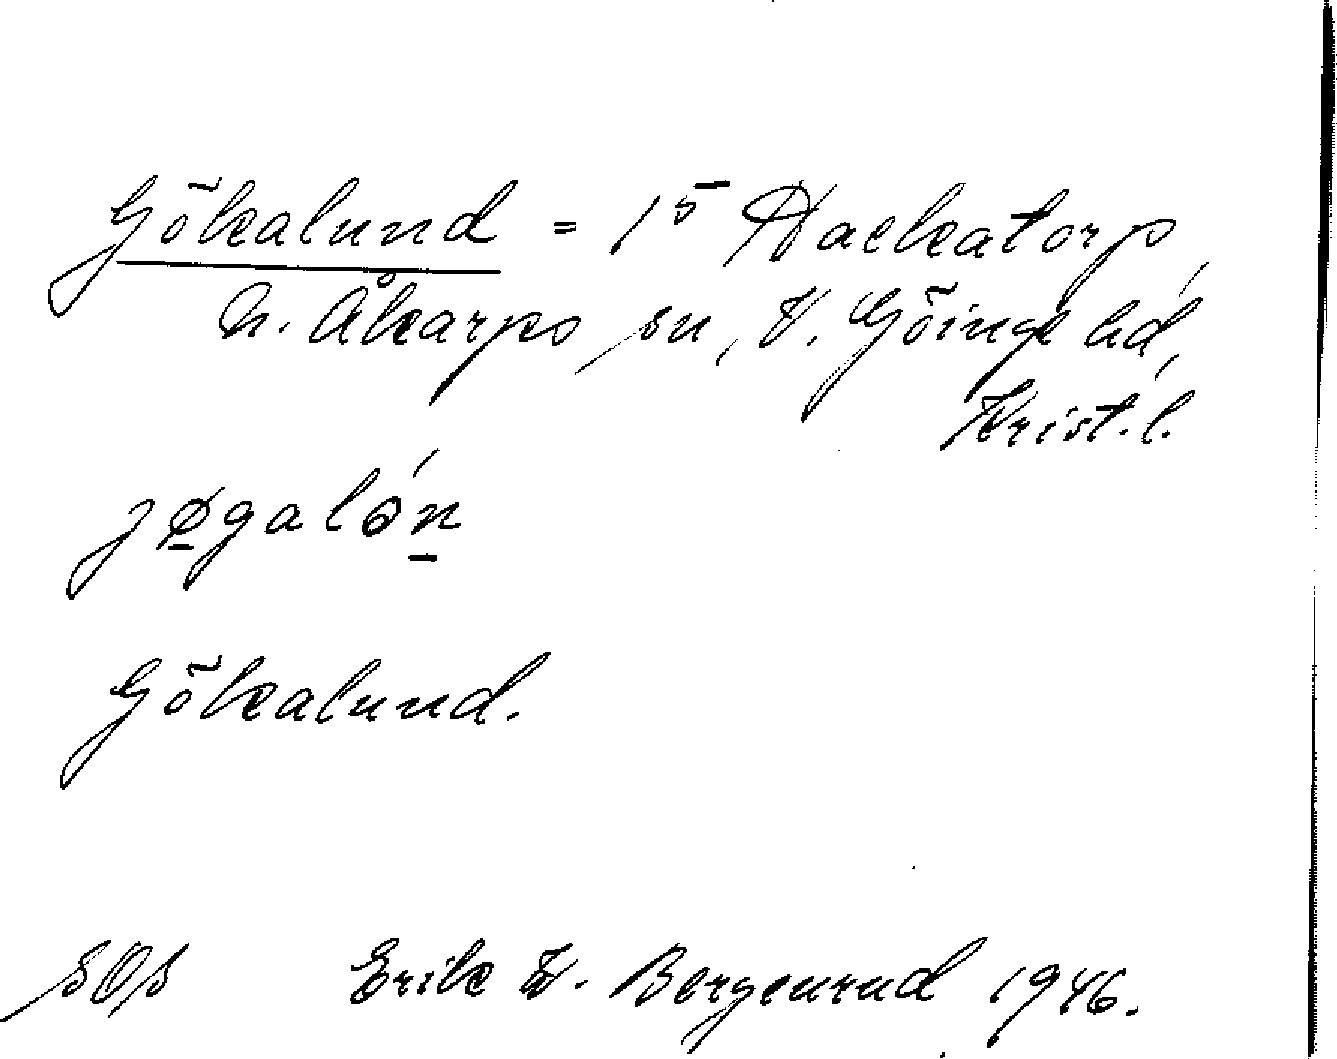 Gökalund = 15 Hackatorp,
N. Åkarps sn, V. Göinge hd,
Krist. l.
jøgalón
Gökalund.
SOS Erik W. Bergenrud 1946.